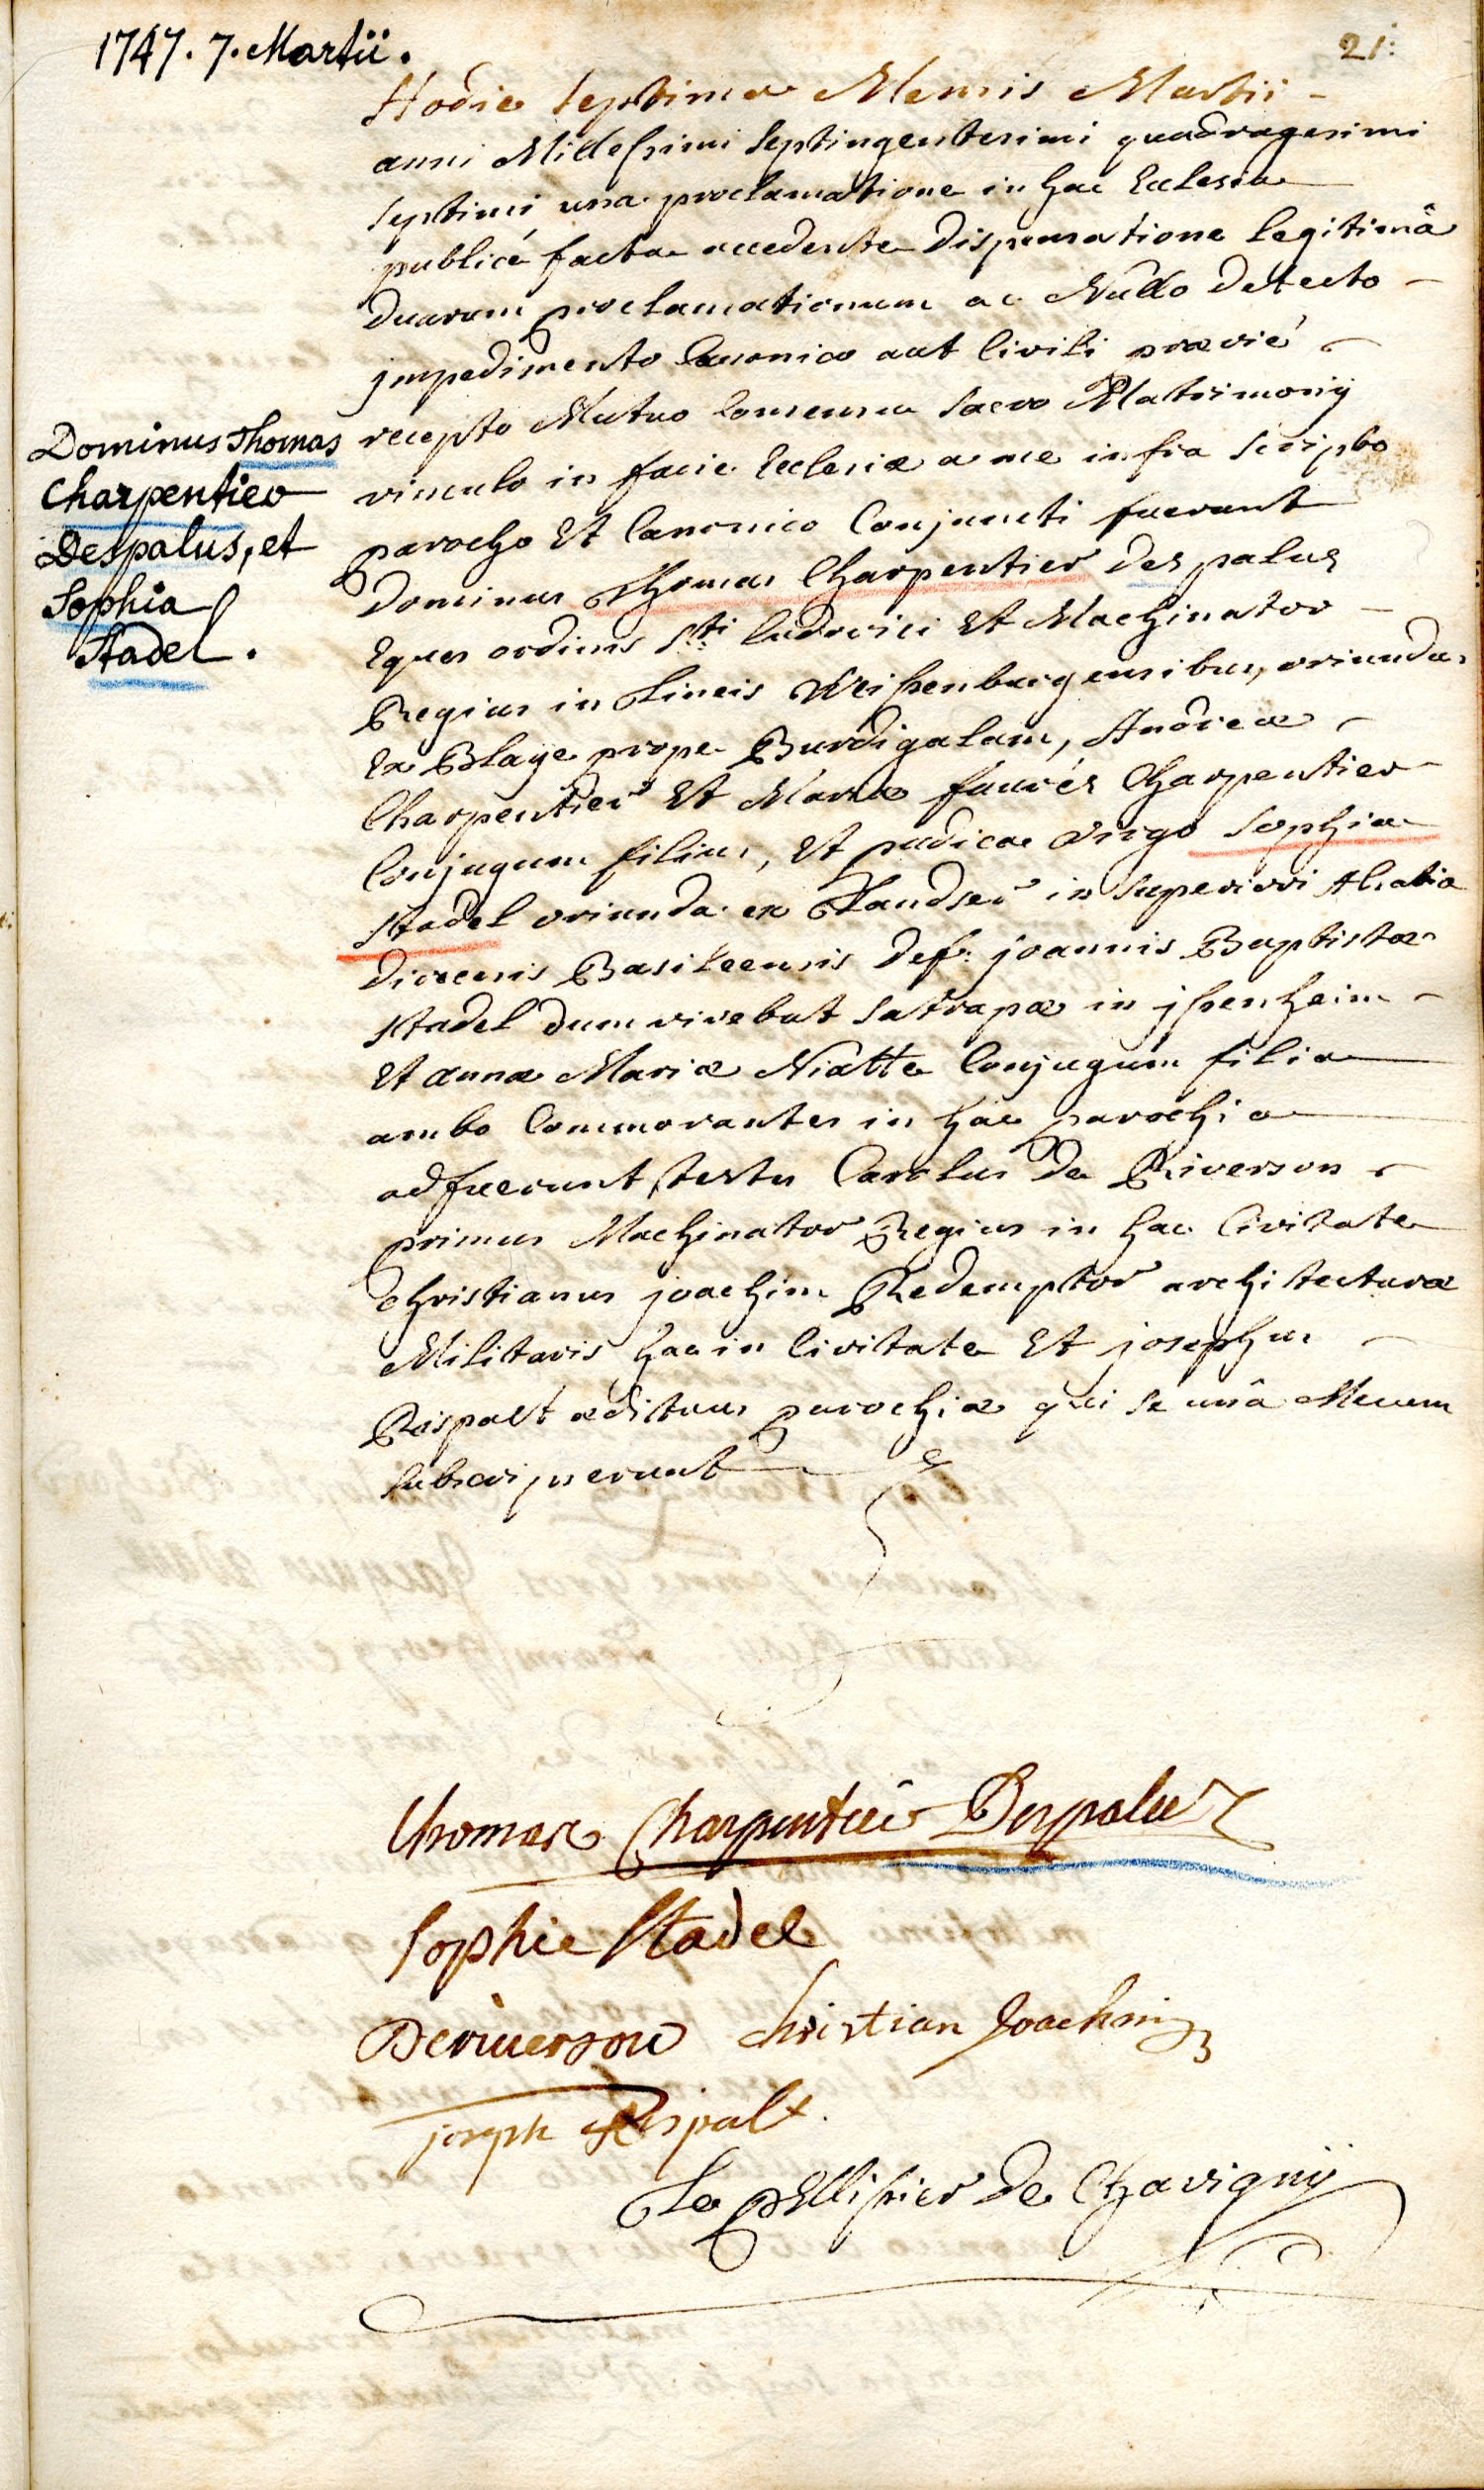 1747. 7. Martii.
21.
Hodie Septima Mensis Martii
anni Millesimi Septingentesimi quadragesimi
Septimi una proclamatione in hac Ecclesia
publicé facta accedente Dispensatione legitimâ
duarum proclamationum ac Nullo detecto
jmpedimento Canonico aut Civili prævié
recepto Mutuo Consensu Sacro Matrimonij
vinculo in facie Ecclesiæ a me infra Scripto
parocho Et Canonico Conjuncti fuerunt
Dominus Thomas Charpentier des palus
Eques ordinis Sti Ludovici Et Machinator
Regius in Lineis Weissenburgensibus, oriundus
Ex Blaye prope Burdigalam, Andreæ
Charpentier Et Mariæ faurés Charpentier
Conjugum filius, Et pudica virgo Sophia
Stadel oriunda ex Landser in Superiori Alsatia
Dioecesis Basileensis Def: joannis Baptistæ
Stadel dum vivebat Satrapæ in jssenheim
Et annæ Mariæ Niatte Conjugum filia
ambo Commorantes in hac parochia
adfuerunt testes Carolus De Riverson
primus Machinator Regius in hac Civitate
Christianus joachim Redemptor architecturæ
Militaris hac in Civitate Et josephus
Rispalt ædituus parochiæ qui se unâ Mecum
subscripserunt
Dominus Thomas
Charpentier
Despalus, et
Sophia
Stadel.
Thomas Charpentier Despalus
Sophie Stadel
Deriverson Christian Joachim
joseph Rispalt.
Le pellissier De Chavigny